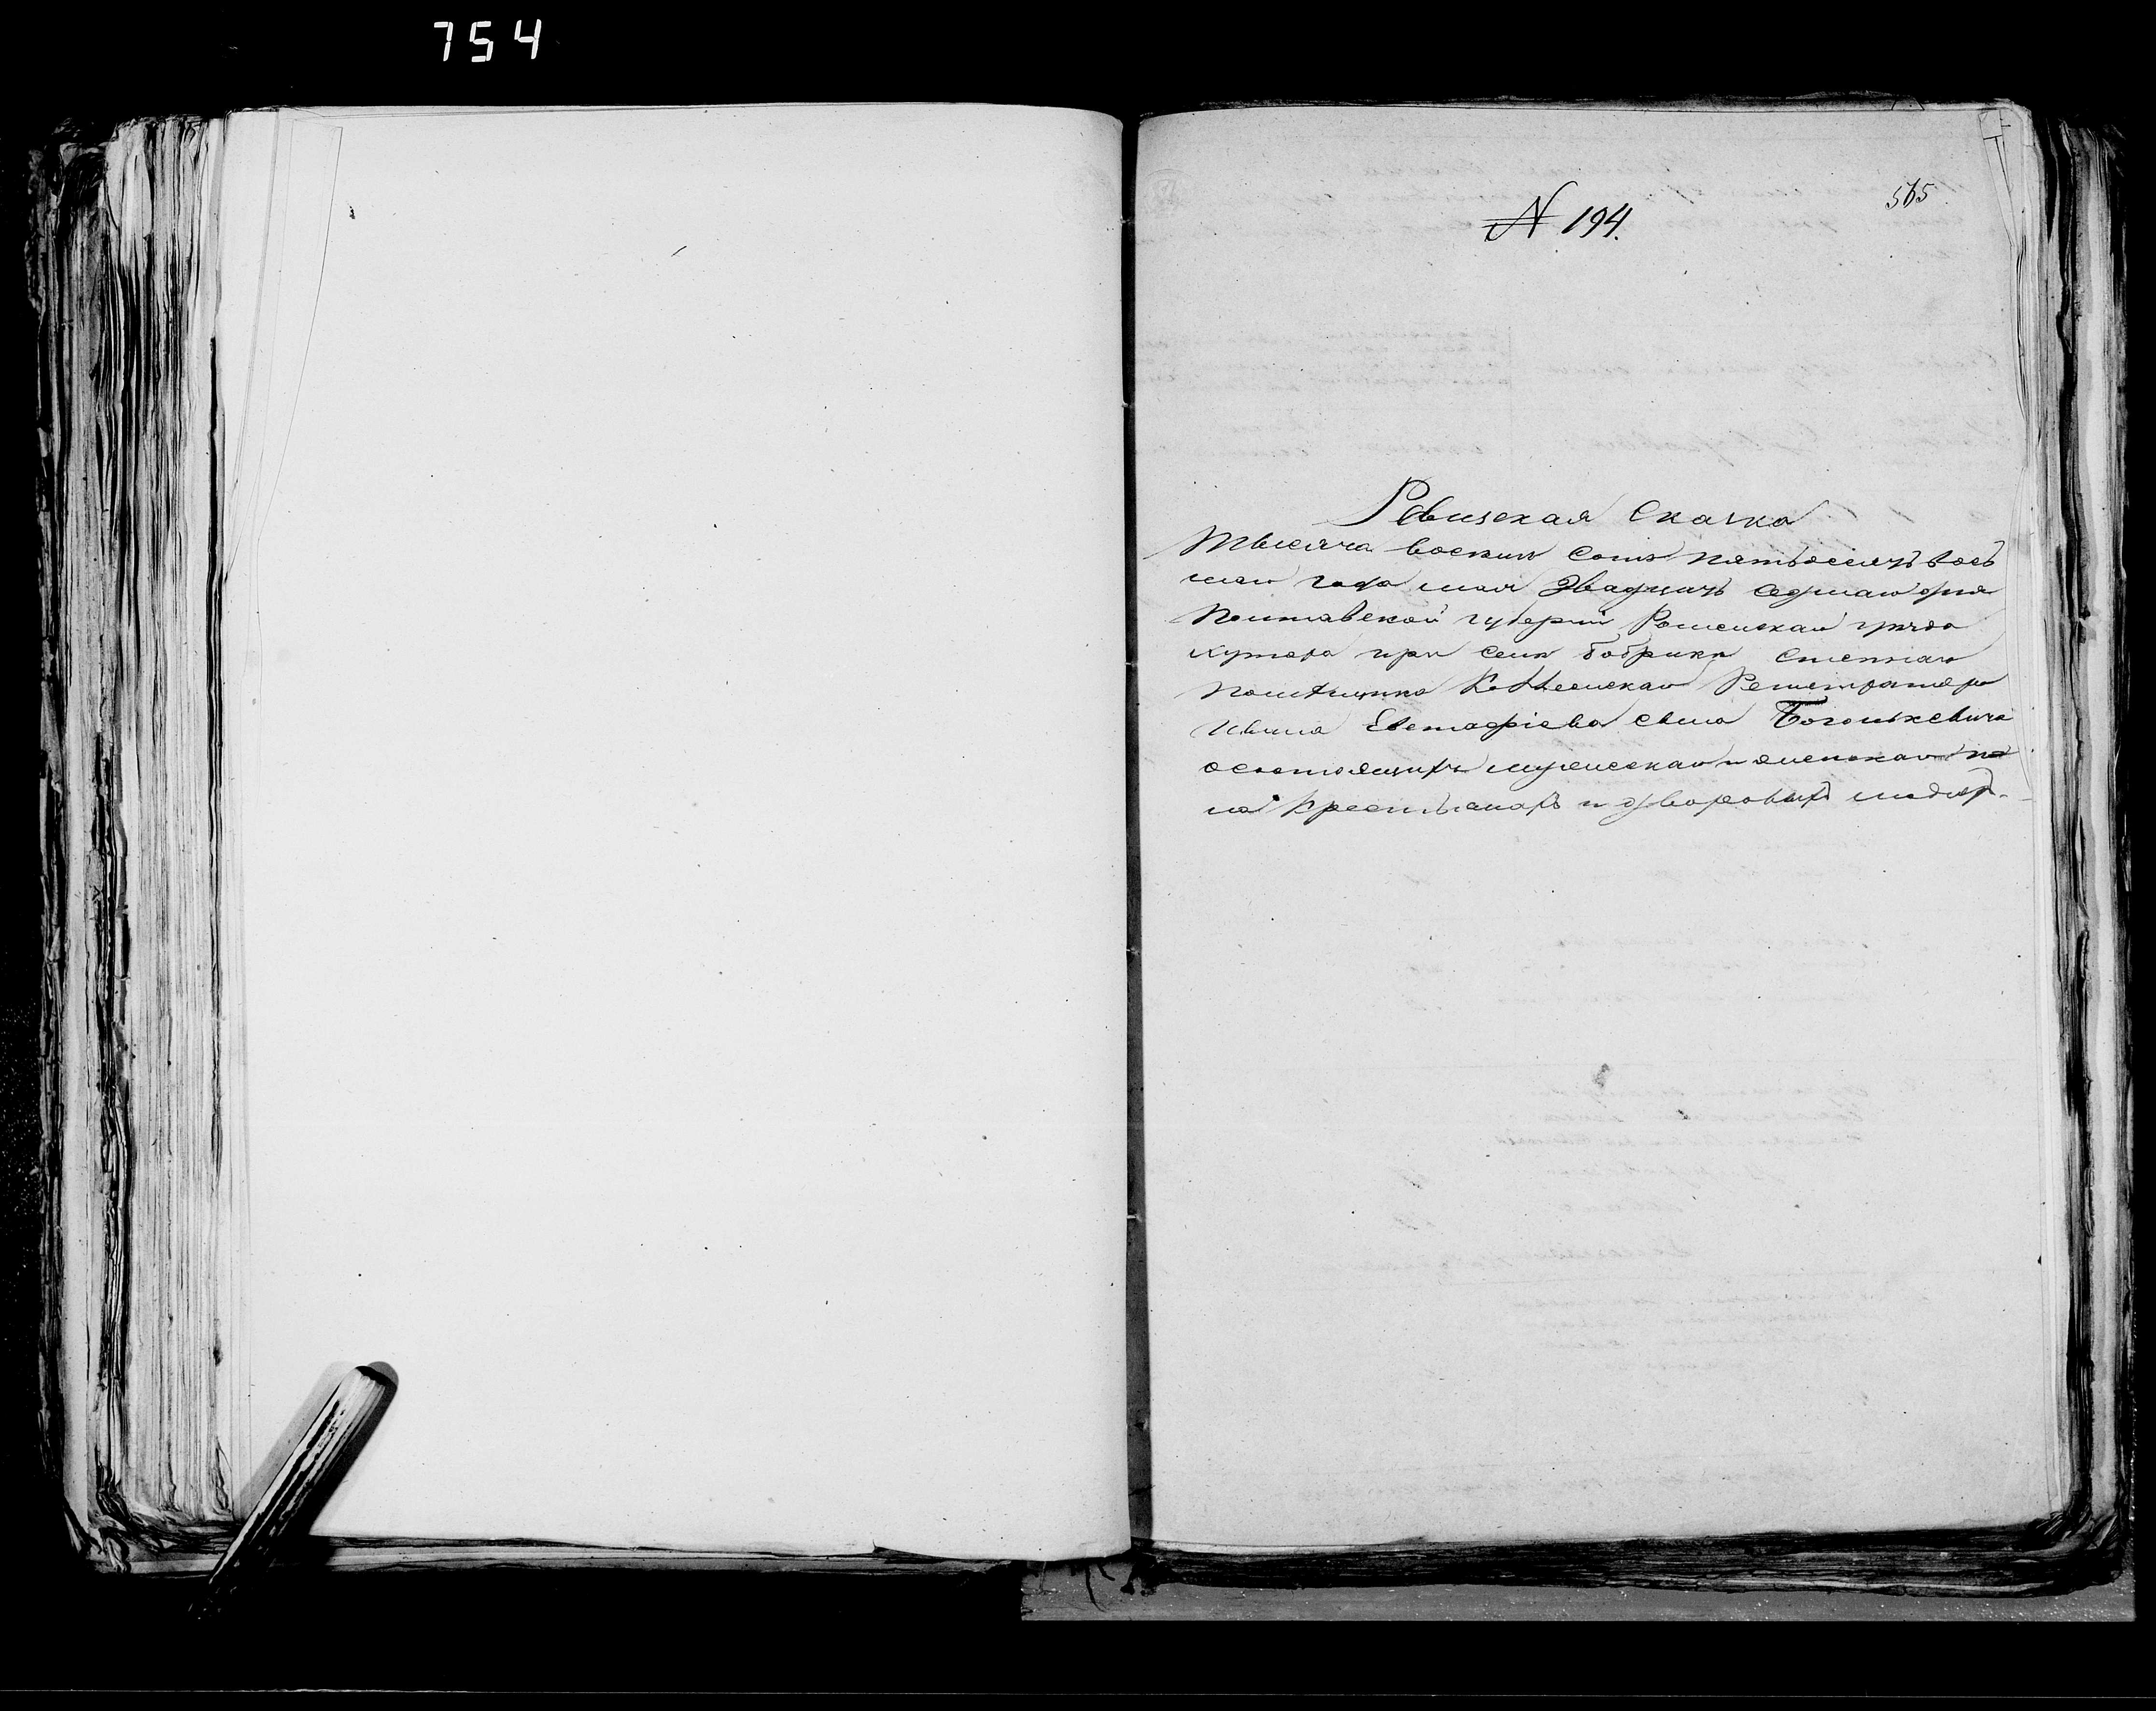 754
565
№ 194.
Ревизская Сказка
Тысяча восемь сотъ пятьдесятъ вось
маго года мая двадцать седмаго дня
Полтавской губерніи Роменскаго уѣзда
хутора при селѣ Бобрикѣ
помѣщика Коллежскаго Регистратора
Ивана Евстафіева сына
о состоящихъ мужескаго и женскаго по
ла крестьянахъ и дворовыхъ людяхъ.